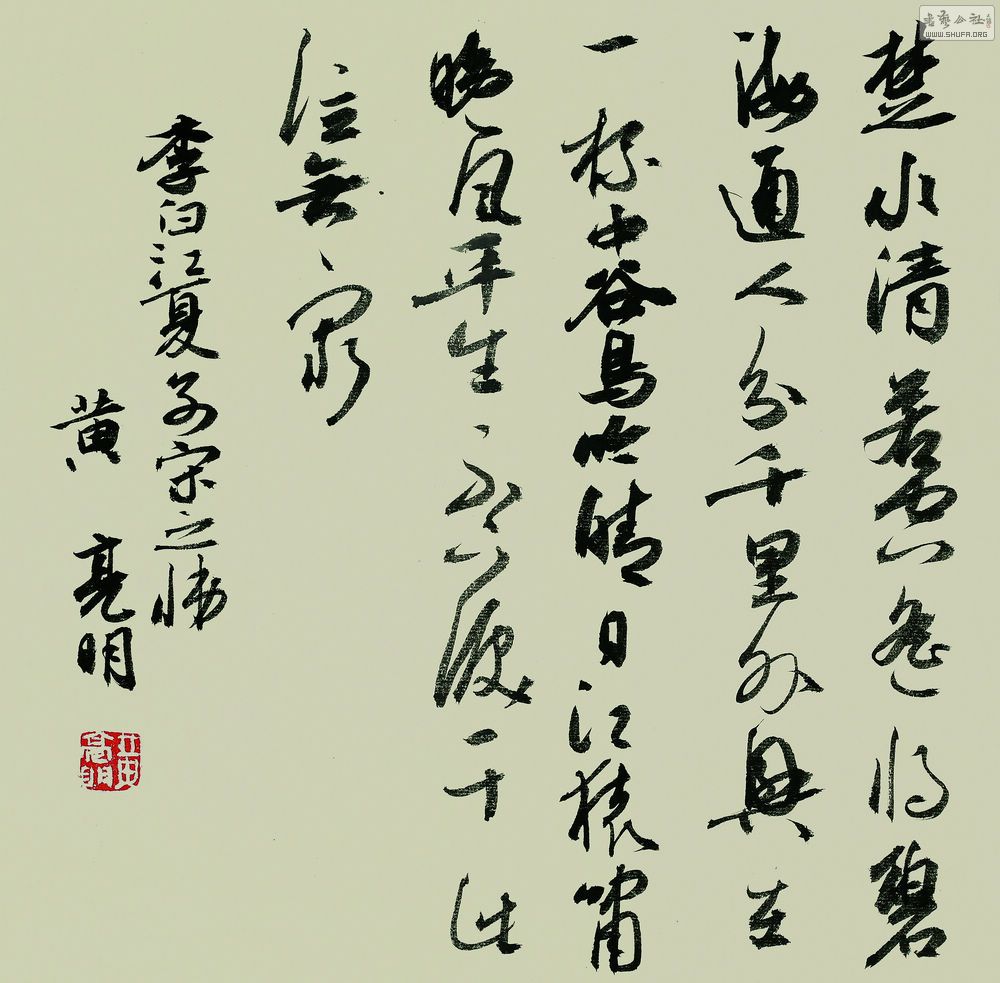 書藝公社
WWW.SHUFA.ORG
楚水清若空遥将碧
海通人分千里外興在
一杯中谷鳥吟晴日江猿嘯
晚風平生不下淚于此
泣無窮
李白江夏别宋之悌
黄亮明